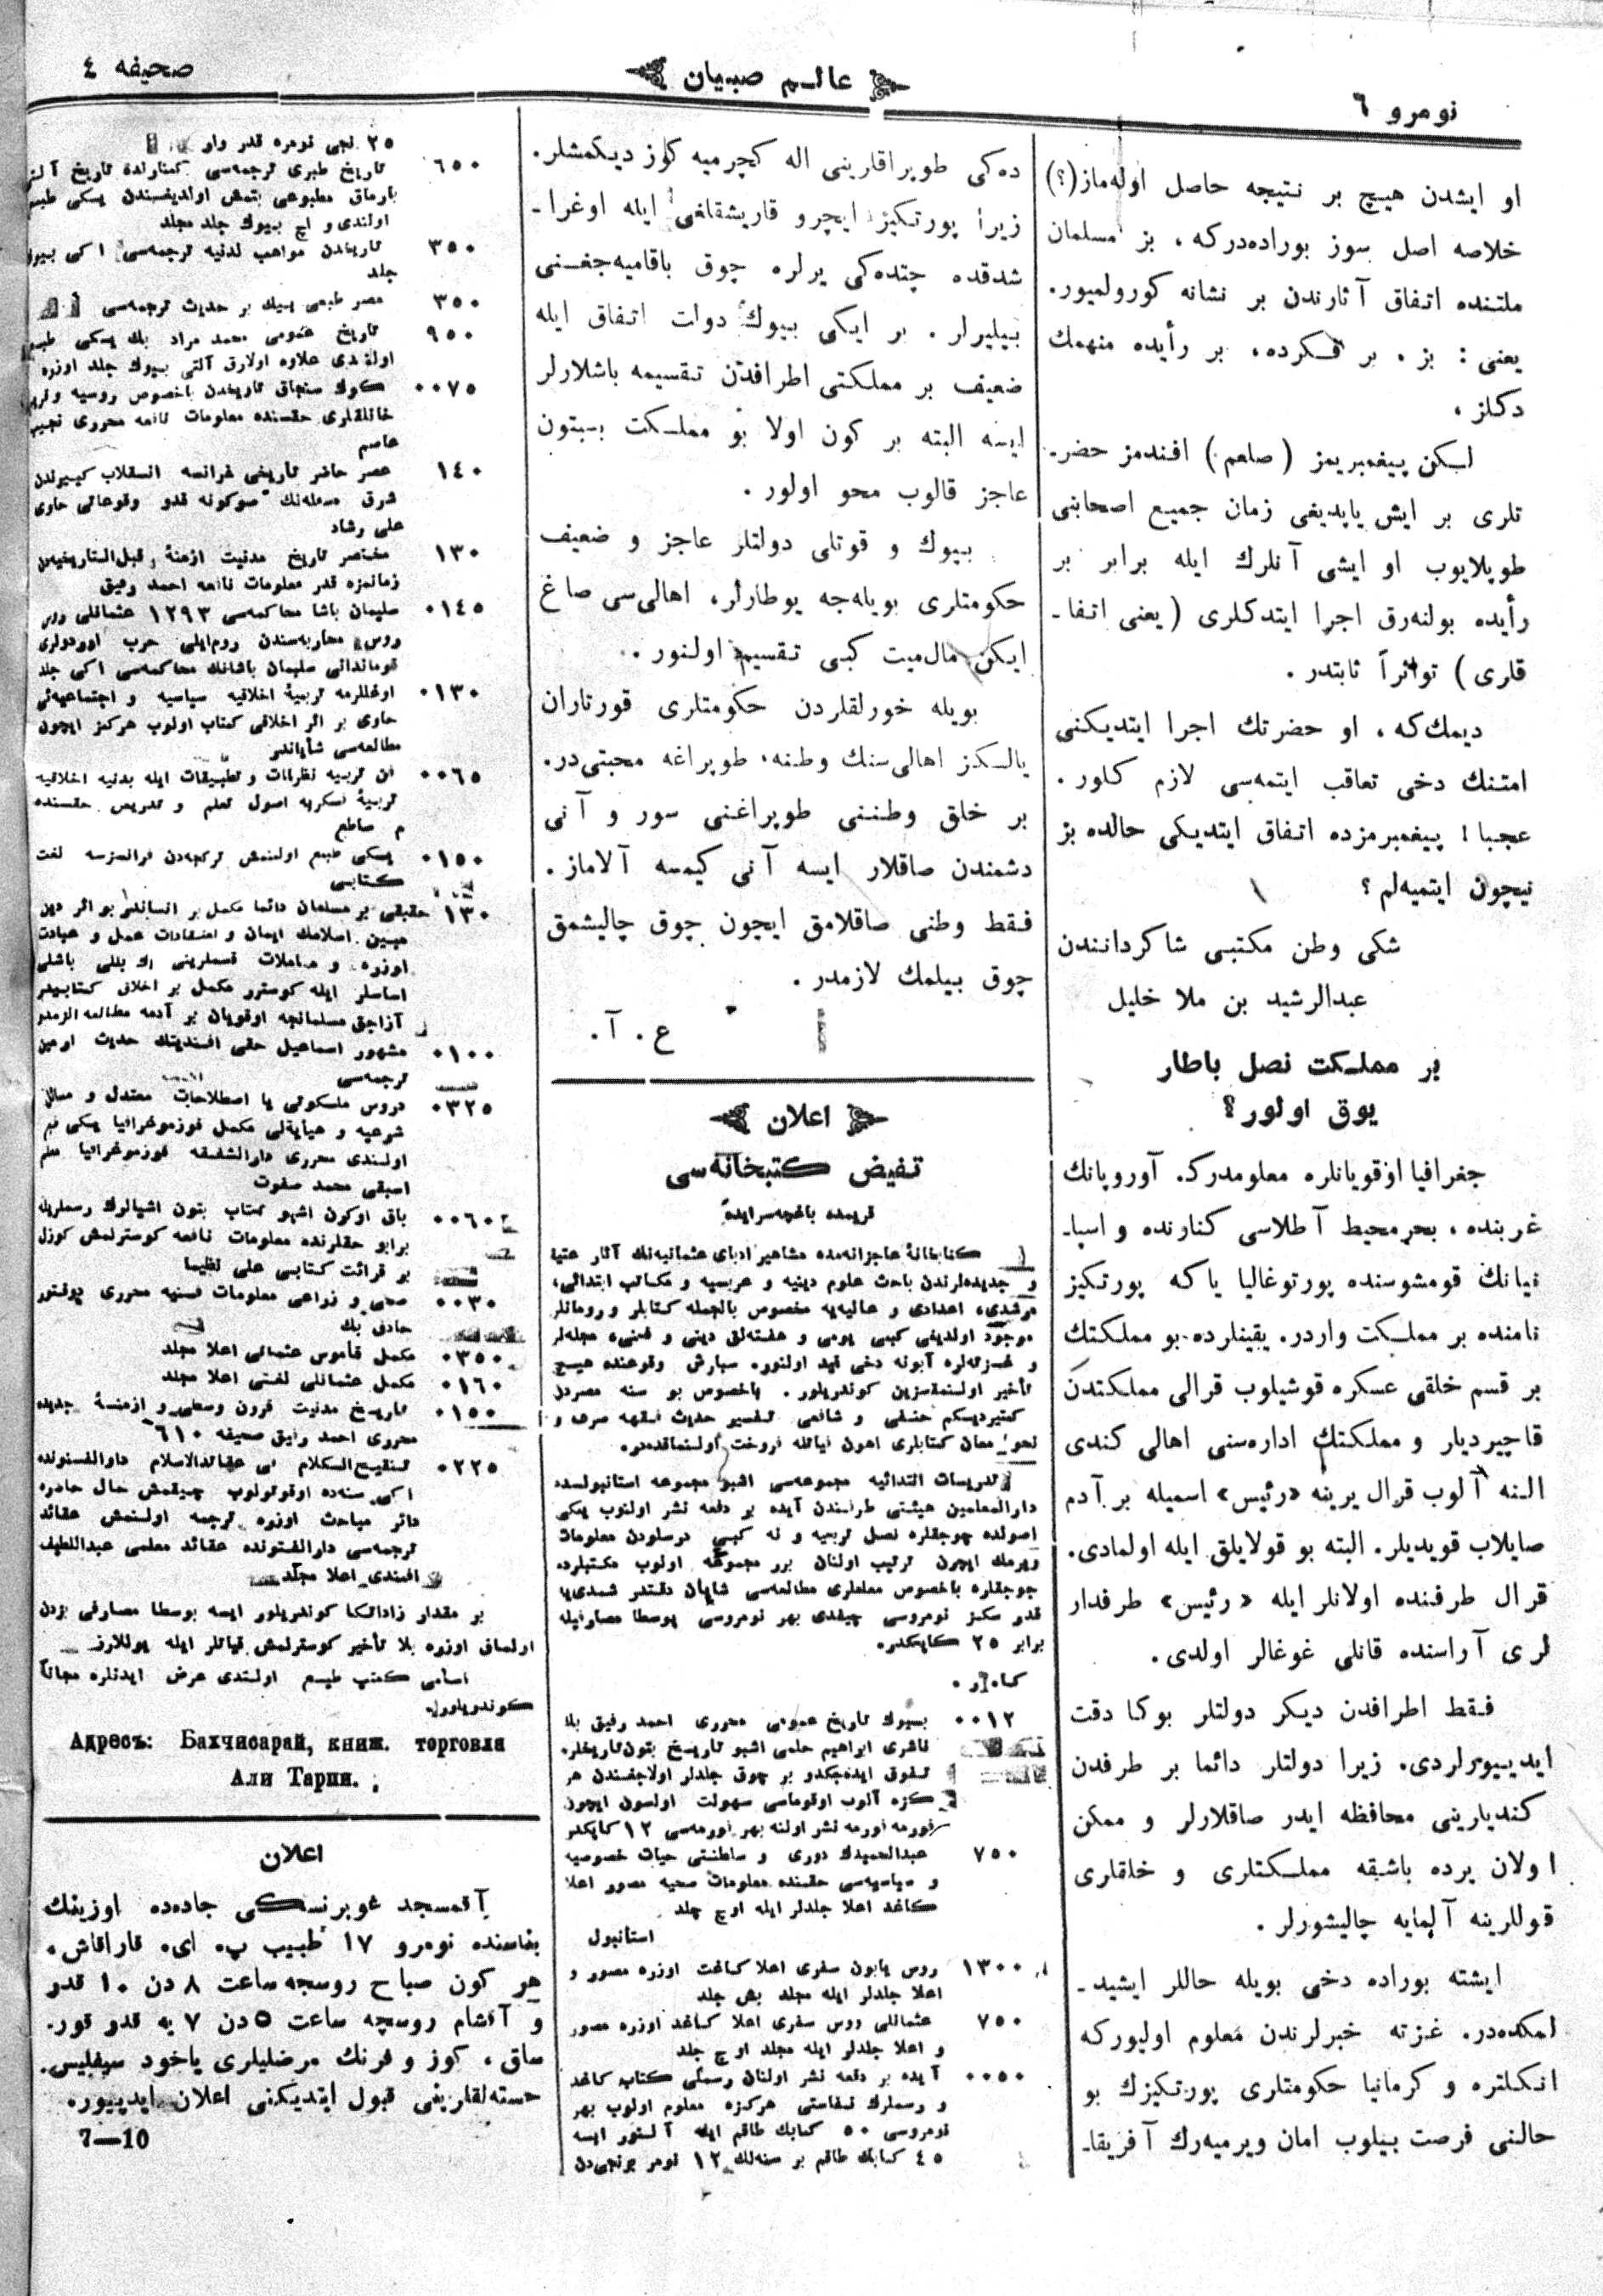 نومرو ٦
عالم صبيان
صحيفه ٤
او ايشدن هيچ بر نتيجه حاصل اوله‌ماز(؟)
خلاصه اصل سوز بوراده‌دركه، بز مسلمان
ملتنده اتفاق آثارندن بر نشانه كورولميور.
يعنى: بز، بر فكرده، بر رأيده منهمك
دكلز،
لكن پيغمبريمز (صلعم) افندمز حضر-
تلرى بر ايش ياپديغى زمان جميع اصحابنى
طوپلايوب او ايشى آنلرك ايله برابر بر
رأيده بولنه‌رق اجرا ايتدكلرى (يعنى اتفا-
قلرى) تواتراً ثابتدر.
ديمك‌كه، او حضرتك اجرا ايتديكنى
امتنك دخى تعاقب ايتمه‌سى لازم كلور.
عجبا! پيغمبرمزده اتفاق ايتديكى حالده بز
نيچون ايتميه‌لم؟
شكى وطن مكتبى شاكرداننندن
عبدالرشيد بن ملا خليل
بر مملكت نصل باطار
يوق اولور؟
جغرافيا اوقويانلره معلومدرك. آوروپانك
غربنده، بحر محيط آطلاسى كنارنده و اسپا-
نيانك قومشوسنده پورتوغاليا ياكه پورتكيز
نامنده بر مملكت واردر. يقينلرده بو مملكتك
بر قسم خلقى عسكره قوشيلوب قرالى مملكتدن
قاچيرديلر و مملكتك اداره‌سنى اهالى كندى
النه آلوب قرال يرينه «رئيس» اسميله بر آدم
صايلاب قويديلر. البته بو قولايلق ايله اولمادى.
قرال طرفنده اولانلر ايله «رئيس» طرفدار
لرى آراسنده قانلى غوغالر اولدى.
فقط اطرافدن ديكر دولتلر بوكا دقت
ايديييورلردى. زيرا دولتلر دائما بر طرفدن
كنديلرينى محافظه ايدر صاقلارلر و ممكن
اولان يرده باشقه مملكتلرى و خلقلرى
قوللرينه آلمايه چاليشورلر.
ايشته بوراده دخى بويله حاللر ايشيد-
لمكده‌در. غزته خبرلرندن معلوم اوليوركه
انكلتره و كرمانيا حكومتلرى پورتكيزك بو
حالنى فرصت بيلوب امان ويرميه‌رك آفريقا-
ده‌كى طوپراقلرينى اله كچرميه كوز ديكمشلر.
زيرا پورتكيز ايچرو قاريشقلغى ايله اوغرا-
شدقده چتده‌كى يرلره چوق باقاميه‌جغنى
بيليرلر. بر ايكى بيوك دولت اتفاق ايله
ضعيف بر مملكتى اطرافدن تقسيمه باشلارلر
ايسه البته بر كون اولا بو مملكت بسبتون
عاجز قالوب محو اولور.
بيوك و قوتلى دولتلر عاجز و ضعيف
حكومتلرى بويله‌جه يوطارلر، اهالى‌سى صاغ
ايكن مال‌ميت كبى تقسيم اولنور.
بويله خورلقلردن حكومتلرى قورتاران
يالكز اهالى‌سنك وطنه، طوپراغه محبتى‌در.
بر خلق وطننى طوپراغنى سور و آنى
دشمندن صاقلار ايسه آنى كيمسه آلاماز.
فقط وطنى صاقلامق ايچون چوق چاليشمق
چوق بيلمك لازمدر.
ع. آ.
اعلان
تفيض كتبخانه‌سى
قريمده باغچه‌سرايده
كتابخانهٔ عاجزانه‌مده مشاهير ادباى عثمانيه‌نك آثار عتيقه
و جديده‌لرندن باحث علوم دينيه و عربيه و مكاتب ابتدائى،
رشدى، اعدادى و عاليه‌يه مخصوص بالجمله كتابلر و رومانلر
موجود اولديغى كبى يومى و هفته‌لق دينى و فنى مجله‌لر
و غزته‌لره آبونه دخى قيد اولنور. سپارش وقوعنده هيچ
تأخير اولنمقسزين كوندريلور. باخصوص بو سنه مصردن
كتيرديكم حنفى و شافعى تفسير حديث فقهه صرف و
نحو معان كتابلرى اهون فياتله فروخت اولنمقده‌در.
تدريسات ابتدائيه مجموعه‌سى اشبو مجموعه استانبولده
دارالمعلمين هيئتى طرفندن آيده بر دفعه نشر اولنوب يكى
اصولده چوجقلره نصل تربيه و نه كبى درسلردن معلومات
ويرمك ايچون ترتيب اولنان برر مجموعه اولوب مكتبلرده
چوجقلره باخصوص معلملرى مطالعه‌سى شايان دقتدر شمدى‌يا
قدر سكز نومروسى چيقدى بهر نومروسى پوسطا مصارفيله
برابر ٢٥ كاپكدر.
٠٠١٢ بيوك تاريخ عمومى محررى احمد رفيق بك
ناشرى ابراهيم حلمى اشبو تاريخ بتون تاريخلره
تفوق ايده‌جكدر بر چوق جلدلر اولاجغندن هر
كزه آلوب اوقوماسى سهولت اولسون ايچون
فورمه فورمه نشر اولنه بهر فورمه‌سى ١٢ كاپكدر
٧٥٠ عبدالحميدك دورى و سلطنتى حيات خصوصيه
و سياسيه‌سى حقنده معلومات صحيه مصور اعلا
كاغد اعلا جلدلر ايله اوچ جلد
استانبول
١٣٠٠ روس يابون سفرى اعلا كاغت اوزره مصور و
اعلا جلدلر ايله مجلد بش جلد
٧٥٠ عثمانلى روس سفرى اعلا كاغد اوزره مصور
و اعلا جلدلر ايله مجلد اوچ جلد
٠٠٥٠ آيده بر دفعه نشر اولنان رسملى كتاب كاغد
و رسملرك نفاستى هركزه معلوم اولوب بهر
نومروسى ٥٠ كپابك طاقم ايله آلنور ايسه
٤٥ كپابك طاقم بر سنه‌لك ١٢ نومر برنجى‌دن
٢٥ نجى نومره قدر وار
٦٥٠ تاريخ طبرى ترجمه‌سى كنارلنده تاريخ آلتى
پارماق مطبوعى بتمش اولديغندن يسكى طبع
اولندى و اچ بيوك جلد مجلد
٣٥٠ تاريخدن مواهب لدنيه ترجمه‌سى اكى بيوك
جلد
٣٥٠ مصر طبعى بيك بر حديث ترجمه‌سى
٩٥٠ تاريخ عمومى محمد مراد بك يسكى طبع
اولندى علاوه اولارق آلتى بيوك جلد اوزره
٠٠٧٥ كوك سنجاق تاريخدن باخصوص روسيه و قريم
خانلقلرى حقنده معلومات نافعه محررى نجيب
عاصم
١٤٠ عصر حاضر تاريخى فرانسه انقلاب كبيرلدن
شرق مسئله‌نك صوكونه قدر وقوعاتى حاوى
على رشاد
١٣٠ مختصر تاريخ مدنيت ازمنهٔ قبل‌التاريخيه‌دن
زمانمزه قدر معلومات نافعه احمد رفيق
٠١٤٥ سليمان پاشا محاكمه‌سى ١٢٩٣ عثمانلى روس
روس محاربه‌سندن روم‌ايلى حرب اوردولرى
قوماندانى سليمان پاشانك محاكمه‌سى اكى جلد
٠١٣٠ اوغللرمه تربيهٔ اخلاقيه سياسيه و اجتماعيه‌ئى
حاوى بر اثر اخلاقى كتاب اولوب هركز ايچون
مطالعه‌سى شاياندر
٠٠٦٥ فن تربيه نظريات و تطبيقات ايله بدنيه اخلاقيه
تربيهٔ فكريه اصول تعلم و تدريس حقنده
م ساطع
٠١٥٠ يسكى طبع اولنمش تركجه‌دن فرانسزسه لغت
كتابى
١٣٠ حقيقى بر مسلمان دائما مكمل بر انساندر بو اثر دين
مبين اسلامك ايمان و اعتقادات عمل و عبادت
اوزره و معاملات قسملرينى اك بللى باشلى
اساسلر ايله كوسترر مكمل بر اخلاق كتابيدر
آزاجق مسلمانجه اوقويان بر آدمه مطالعه الزمدر
٠١٠٠ مشهور اسماعيل حقى افندينك حديث اربعين
ترجمه‌سى
٠٣٢٥ دروس ملكوتى يا اصطلاحات معتدل و مسائل
شرعيه و هيأيه‌لى مكمل قوزموغرافيا يسكى طبع
اولندى محررى دارالشفقه قوزموغرافيا معلم
اسبقى محمد صفوت
٠٠٦٠ باق اوكون اشبو كتاب بتون اشيالرك رسملريله
برابر حقلرنده معلومات نافعه كوسترلمش كوزل
بر قرائت كتابى على نظيما
٠٠٣٠ صحى و زراعى معلومات فنيه محررى دوقتور
حاذق بك
٠٣٥٠ مكمل قاموس عثمانى اعلا مجلد
٠١٦٠ مكمل عثمانلى لغتى اعلا مجلد
٠١٥٠ تاريخ مدنيت قرون وسطى و ازمنهٔ جديده
محررى احمد رفيق صحيفه ٦١٠
٠٢٢٥ تنقيح‌الكلام فى عقائدالاسلام دارالفنونده
اكى سنه‌ده اوقوتولوب چيقمش حال حاضره
دائر مباحث اوزره ترجمه اولنمش عقائد
ترجمه‌سى دارالفنونده عقائد معلمى عبداللطيف
افندى اعلا مجلد
بر مقدار زاداتكا كوندريلور ايسه پوسطا مصارفى بزدن
اولماق اوزره بلا تأخير كوسترلمش فياتلر ايله يوللارز
اسامى كتب طبع اولندى عرض ايدنلره مجاناً
كوندريلور.
Адресъ: Бахчисарай, книж. торговля
Али Тарпи.
اعلان
آقمسجد غوبرنسكى جادده اوزينك
بناسنده نومرو ١٧ طبيب پ. اى. قاراقاش.
هر كون صباح روسجه ساعت ٨ دن ١٠ قدر
و آقشام روسچه ساعت ٥ دن ٧ يه قدر قور.
ساق، كوز و فرنك مرضليلرى ياخود سيفليس.
خسته‌لقلرينى قبول ايتديكنى اعلان ايدييوره
7—10